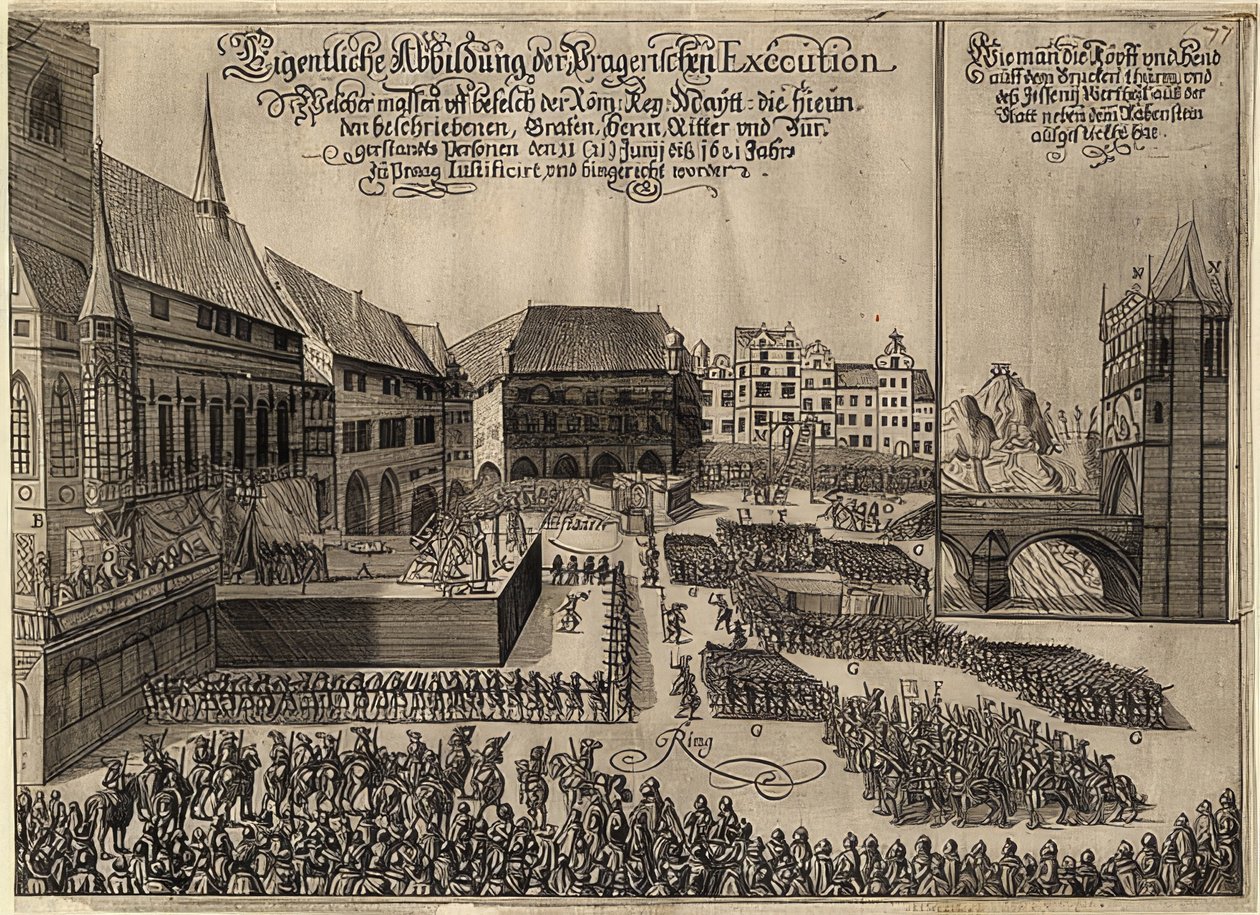 Eigentliche Abbildung der Pragerischen Execution
Welcher massen uff befelch der Röm: Key: Maytt: die hieun
den beschriebenen, Grafen, Herrn, Ritter vnd Bür
gerstands Personen den 11 (21) Junij diß 1621 Jahrs
zu Praag Iustificirt, vnd hingericht worden.
77
Wie man die Köpff vnd Hend
auff dem Brucken thurm, vnd
deß Jessenij Viertheil auß der
Statt neben dem Rabenstein
ausgesteckt hat.
N N
B
F
G
G
G
F
G
G
G
Ring